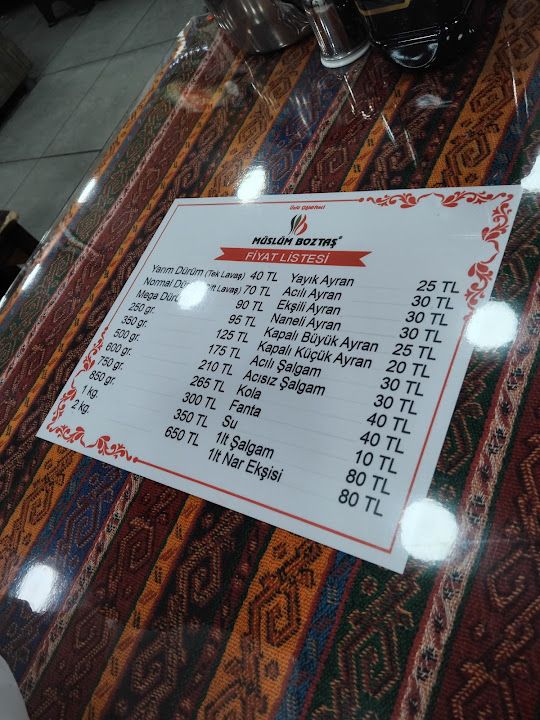 Çiğköfteci
MÜSLÜM BOZTAŞ®
FİYAT LİSTESİ
Yarım Dürüm (Tek Lavaş) 40 TL
Normal Lavaş) 70 TL
Mega 90 TL
250 gr. 95 TL
350 gr. 125 TL
500 gr. 175 TL
600 gr. 210 TL
750 gr. 265 TL
850 gr. 300 TL
1 kg. 350 TL
2 kg. 650 TL
Yayık Ayran 25 TL
Acılı Ayran 30 TL
Ekşili Ayran 30 TL
Naneli Ayran 30 TL
Kapalı Büyük Ayran 25 TL
Kapalı Küçük Ayran 20 TL
Acılı Şalgam 30 TL
Acısız Şalgam 30 TL
Kola 40 TL
Fanta 40 TL
Su 10 TL
1lt Şalgam 80 TL
1lt Nar Ekşisi 80 TL